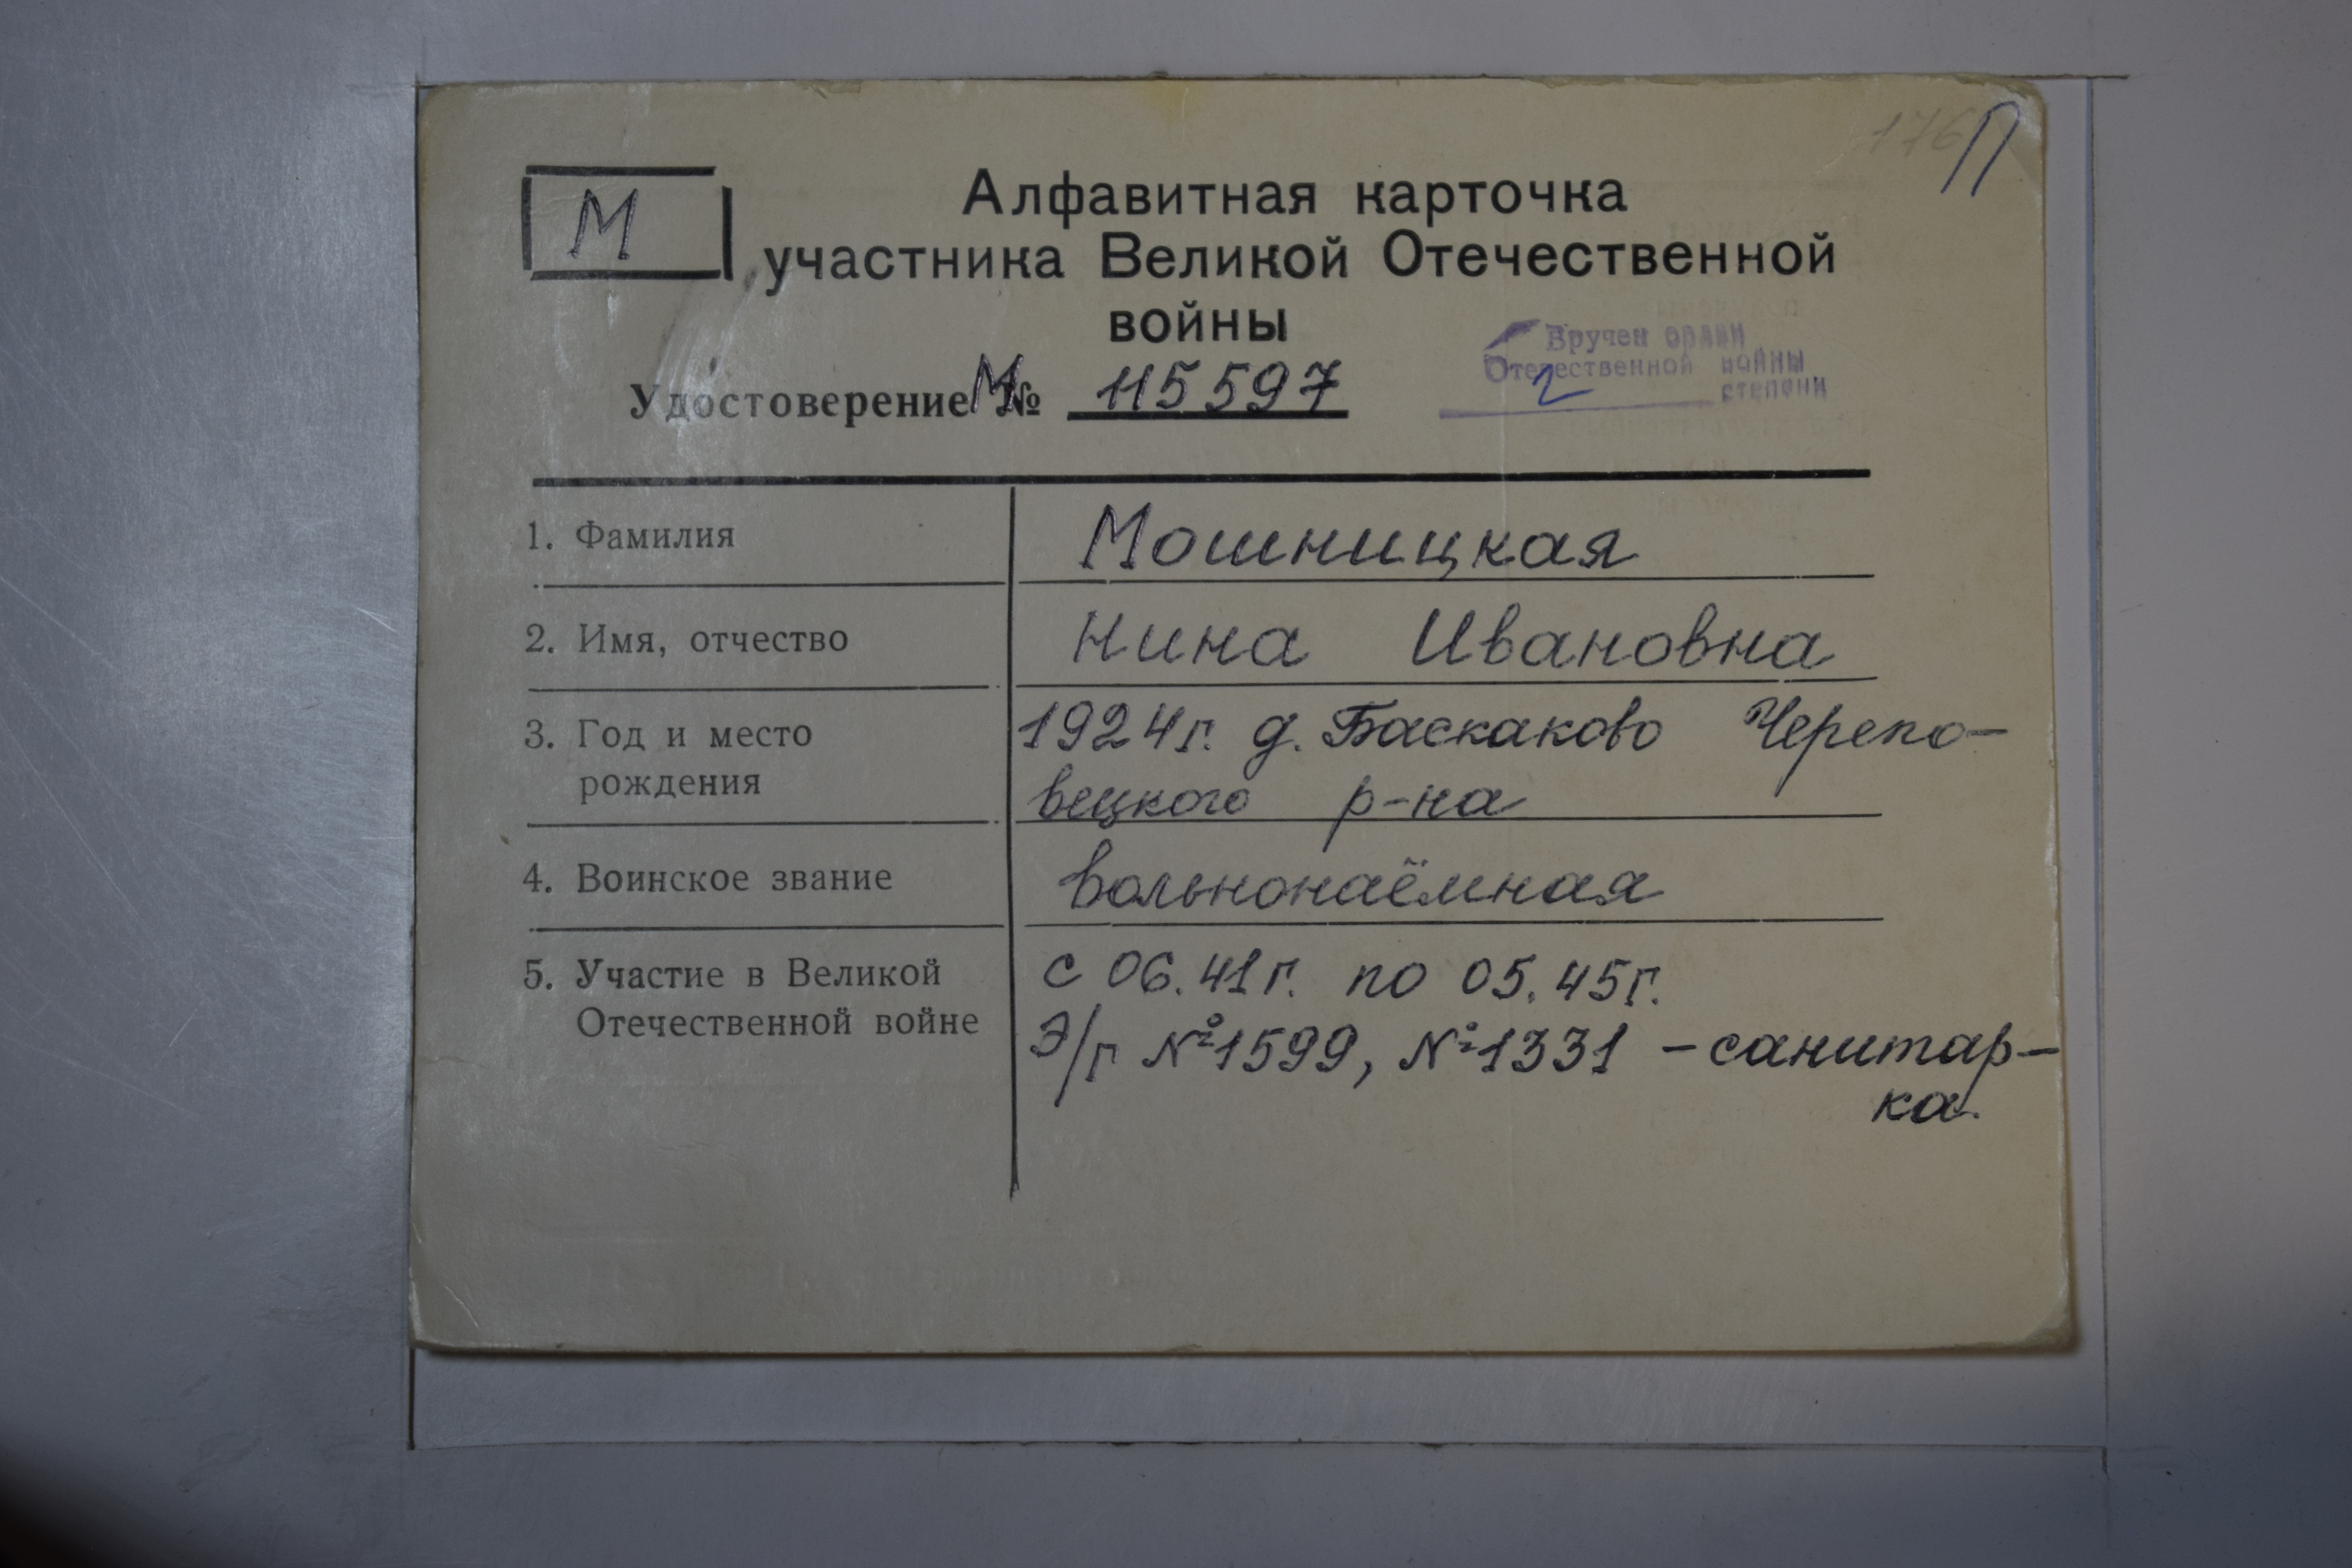 176 П
М
Алфавитная карточка
участника Великой Отечественной
войны
Вручен орден
Отечественной войны
2 степени
Удостоверение М № 115597
1. Фамилия
Мошницкая
2. Имя, отчество
Нина Ивановна
3. Год и место
рождения
1924г. д. Баскаково Черепо-
вецкого р-на
4. Воинское звание
вольнонаёмная
5. Участие в Великой
Отечественной войне
с 06.41г. по 05.45г.
Э/г №1599, №1331 - санитар-
ка.